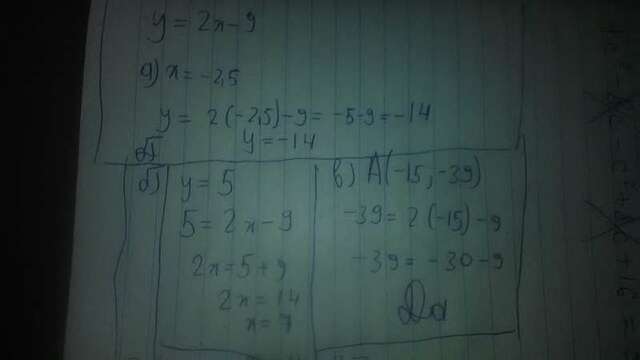 y = 2x - 9
а) x = -2,5
y = 2(-2,5) - 9 = -5-9 = -14
y = -14
б) y = 5
5 = 2x - 9
2x = 5 + 9
2x = 14
x = 7
в) A(-15; -39)
-39 = 2(-15) - 9
-39 = -30 - 9
Да